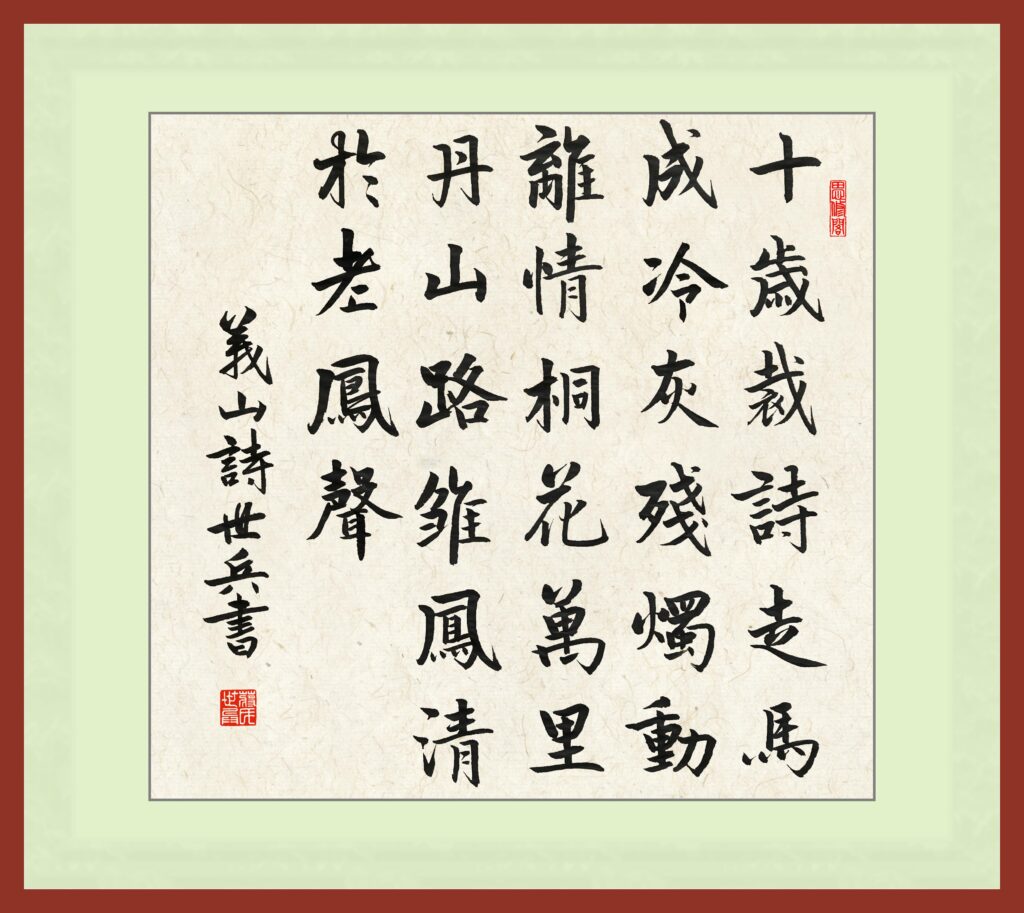 思修閣
十歲裁詩走馬
成冷灰殘燭動
離情桐花萬里
丹山路雏鳳清
於老鳳聲
義山詩世兵書